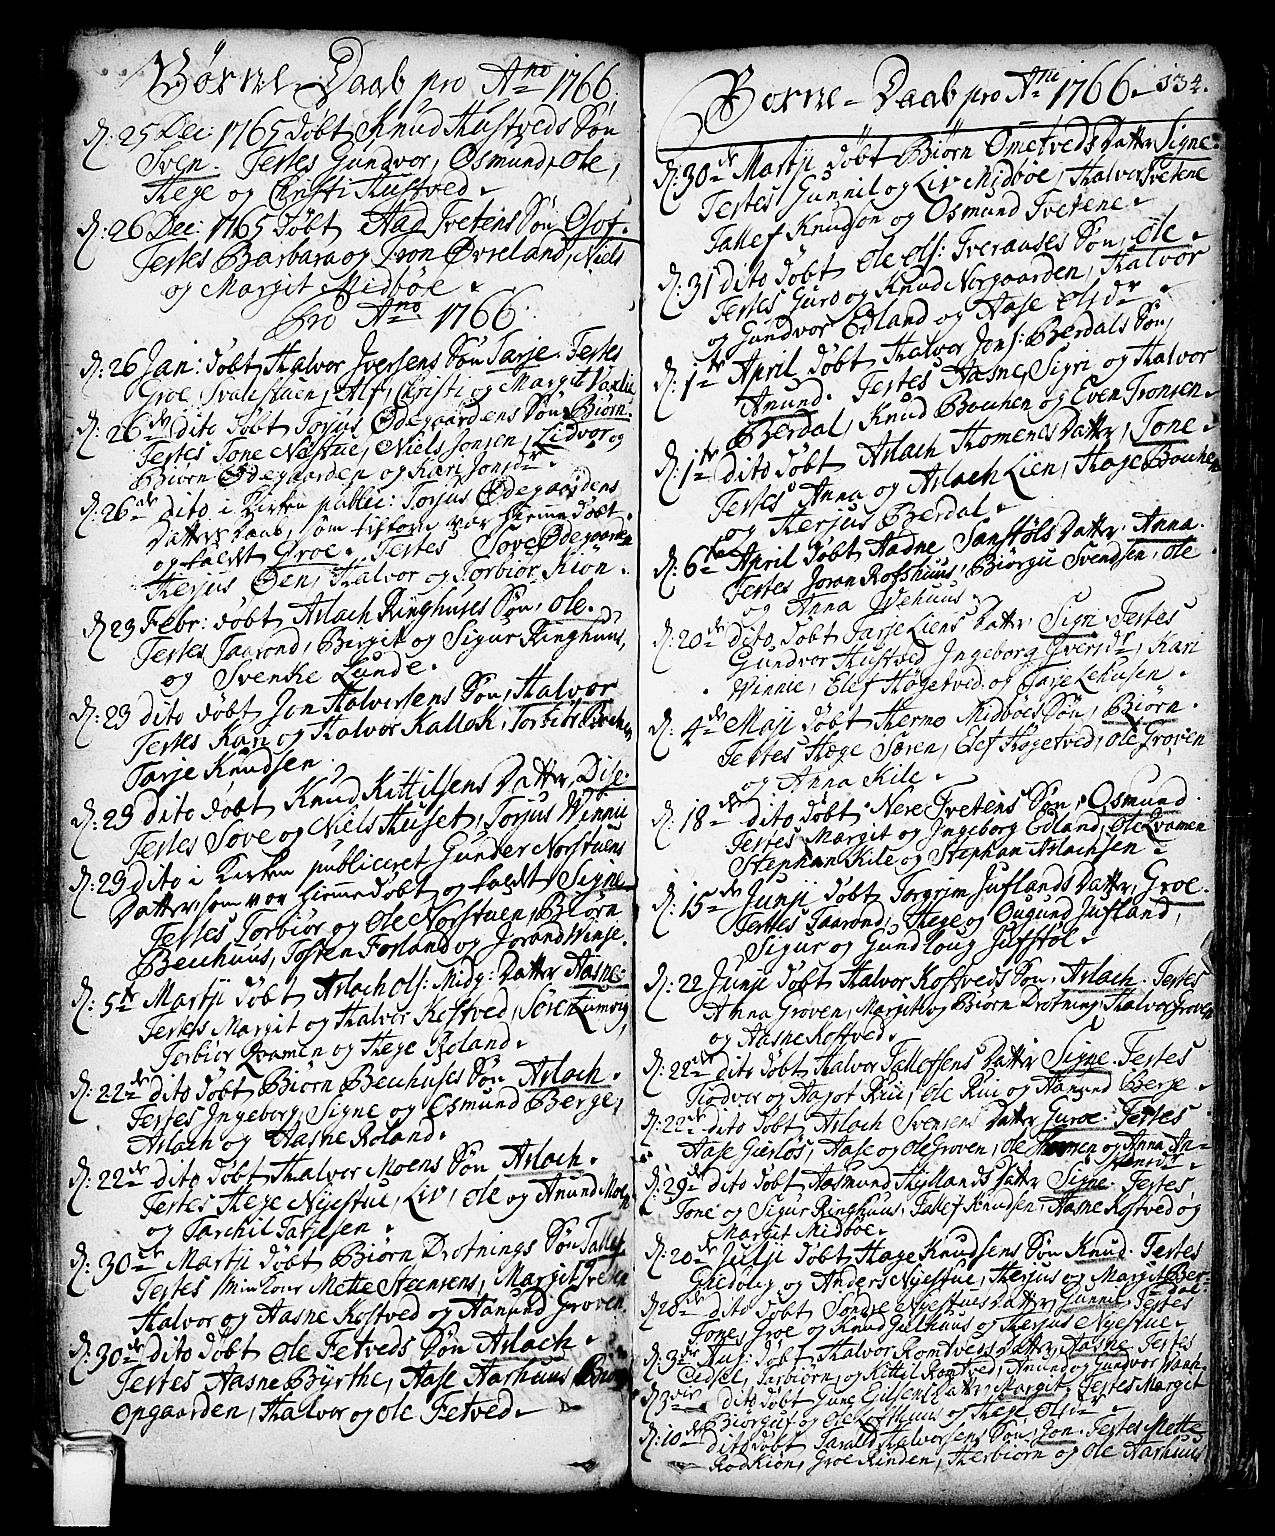 Børne-Daab pro Ao 1766.
D: 25 Dec: 1765 døbt Knud Hustveds Søn
Sven. Testes Gundvor, Osmund, Ole,
Hege og Christi Hustved.
D: 26 Dec: 1765 døbt Aad Tvetens Søn Olof.
Testes Barbara og Tron Øvreland, Niels
og Margit Midbøe.
Pro Ano 1766.
D: 26 Jan: døbt Halvor Iversens Søn Tarje. Testes
Groe Svalestuen, Alf, Christi og Margit Vaxlie
D: 26de dito døbt Torjus Ødegaardens Søn Biørn.
Testes Tone Nestue, Niels Jonsen, Lidvor og
Biørn Ødegaarden og Kari Jonsdr.
D: 26de dito i Kirken public: Torjus Ødegaardens
Datters Daab, som tilforn var hiemmedøbt
og kaldt Groe. Testes Sove Ødegaarden
Herjus Øen, Halvor og Torbiør Kiøn.
D: 23 Febr: døbt Aslach Ringhuses Søn, Ole.
Testes Taarond, Bergit og Sigur Ringhuus,
og Svenke Lunde.
D: 23 dito døbt Jon Halvorsens Søn, Halvor
Testes Kari og Halvor Kallak, Torbiør
Tarje Knudsen.
D: 23 dito døbt Knud Kittilsens Datter, Dise.
Testes Sove og Niels Huset, Torjus Winnie
D: 23 dito i Kirken publiceret Gunder Norstuens
Datter, som var hiemmedøbt og kaldt Signe
Testes Torbiør og Ole Norstuen, Biørn
Beuhuus, Tosten Forland og Jorand Winje.
D: 5te Martji døbt Aslach Ols: Midg: Datter Aasne.
Testes Margit og Halvor Kostved, Søren
Torbiør Qvamen og Hege Roland.
D: 22de dito døbt Biørn Beuhuses Søn Aslach.
Testes Ingeborg, Signe og Osmund Berge,
Aslach og Aasne Roland.
D: 22de dito døbt Halvor Moens Søn Aslach.
Testes Hege Nyestue, Liv, Ole og Anund Moen
og Tarchil Tarjesen.
D: 30de Martji døbt Biørn Drotnings Søn Tallef
Testes Min Kone Mette Steensens, Margit Tveten
Halvor og Aasne Kostved og Aanund Groven.
D: 30de dito døbt Ole Fetveds Søn Aslach.
Testes Aasne Byrthe, Aase Aarhuus,
Opgaarden, Halvor og Ole Fetved.
Børne-Daab pro Ao 1766. 334.
D: 30de Martji døbt Biørn Ometveds Datter Signe.
Testes Gunnil og Liv Midbøe, Halvor Tvetene
Tallef Knudsøn og Osmund Tvetene.
D: 31 dito døbt Ole Ols: Tveraases Søn, Ole.
Testes Guro og Knud Norgaarden, Halvor
og Gundvor Edland og Aase Olsdr.
D: 1te April døbt Halvor Jons: Berdals Søn
Anund. Testes Aasne, Sigri og Halvor
Berdal, Knud Bouhen og Even Tronsen.
D: 1te dito døbt Aslach Homenes Datter, Tone.
Testes Anna og Aslach Lien, Hage Bouhen
og Herjus Berdal.
D: 6te April døbt Aadne Sanstøls Datter Anna.
Testes Joran Rofshuus, Biørgu Svendsen, Ole
og Anna Wehuus.
D: 20de dito døbt Tarje Liens Datter Sigri. Testes
Gundvor Hustved, Ingeborg Iversdr, Kari
Winnie, Elef Høgetved og Tarje Lehusen.
D: 4de Maji døbt Thermo Midboes Søn, Biørn.
Testes Hege Søren, Elef Høgetved, Ole Groven
og Anna Kile.
D: 18de dito døbt Nere Tvetens Søn, Osmund.
Testes Margit og Ingeborg Edland, Ole Qvamen
Stephan Kile og Stephan Aslachsen.
D: 15de Junji døbt Torgrim Juflands Datter, Groe.
Testes Taarond, Hege og Ougund Jufland,
Sigur og Gundloug Gilfstøl.
D: 22 Junji døbt Halvor Kostveds Søn, Aslach. Testes
Anna Groven, Margit og Biørn Drotning, Halvor Groven
og Aasne Kostved.
D: 22de dito døbt Halvor Tallefsens Datter Signe. Testes
Liodvor og Aasot Rui, Ole Rui og Aanund Berge.
D: 22de dito døbt Aslach Svensens Datter Guroe. Testes
Aase Gierløs, Aase og Ole Groven, Ole Homen og Anna An-
undsdr.
D: 29de dito døbt Aasmund Hyllands Datter Signe. Testes
Tone og Sigur Ringhuus, Tallef Knudsen, Aasne Kostved og
Margit Midbøe.
D: 20de Julji døbt Hage Knudsens Søn Knud. Testes
Gundloug og Anders Nyestue, Herjus og Margit Ber-
dal.
D: 20de dito døbt Sondre Nyestues Datter, Gunnil. Testes
Tone, Groe og Knud Gielhuus og Herjus Nyestue.
D: 3de Aug: døbt Halvor Romtveds Datter, Aasne. Testes
Cidsel, Torbiørn, og Kittil Romtved, Anund og Gundvor Vaa
D: 3de dito døbt Gung Eilsens Datter, Margit. Testes Margit
Biørgulf og Ole Rofshuus og Hege Olsdr.
D: 10de dito døbt Tarald Halvorsens Søn, Jon. Testes Mette
Rodkiøn, Groe Rinden, Herbiørn og Ole Aarhuus